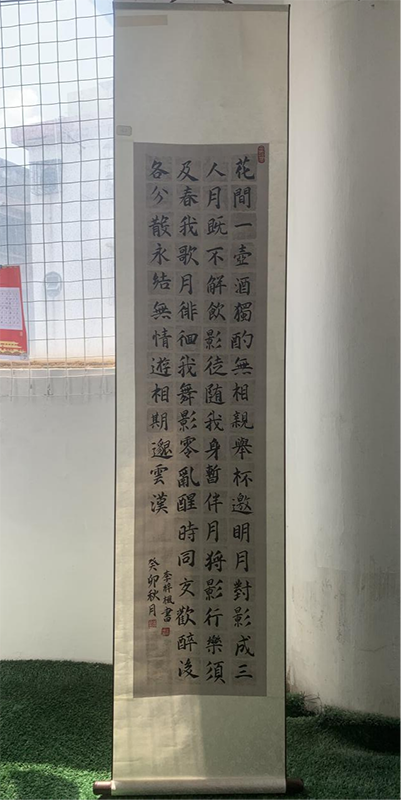 花間一壺酒獨酌無相親舉杯邀明月對影成三
人月既不解飲影徒随我身暫伴月將影行樂須
及春我歌月徘徊我舞影零亂醒時同交歡醉後
各分散永結無情遊相期邈雲漢
癸卯秋月
李書